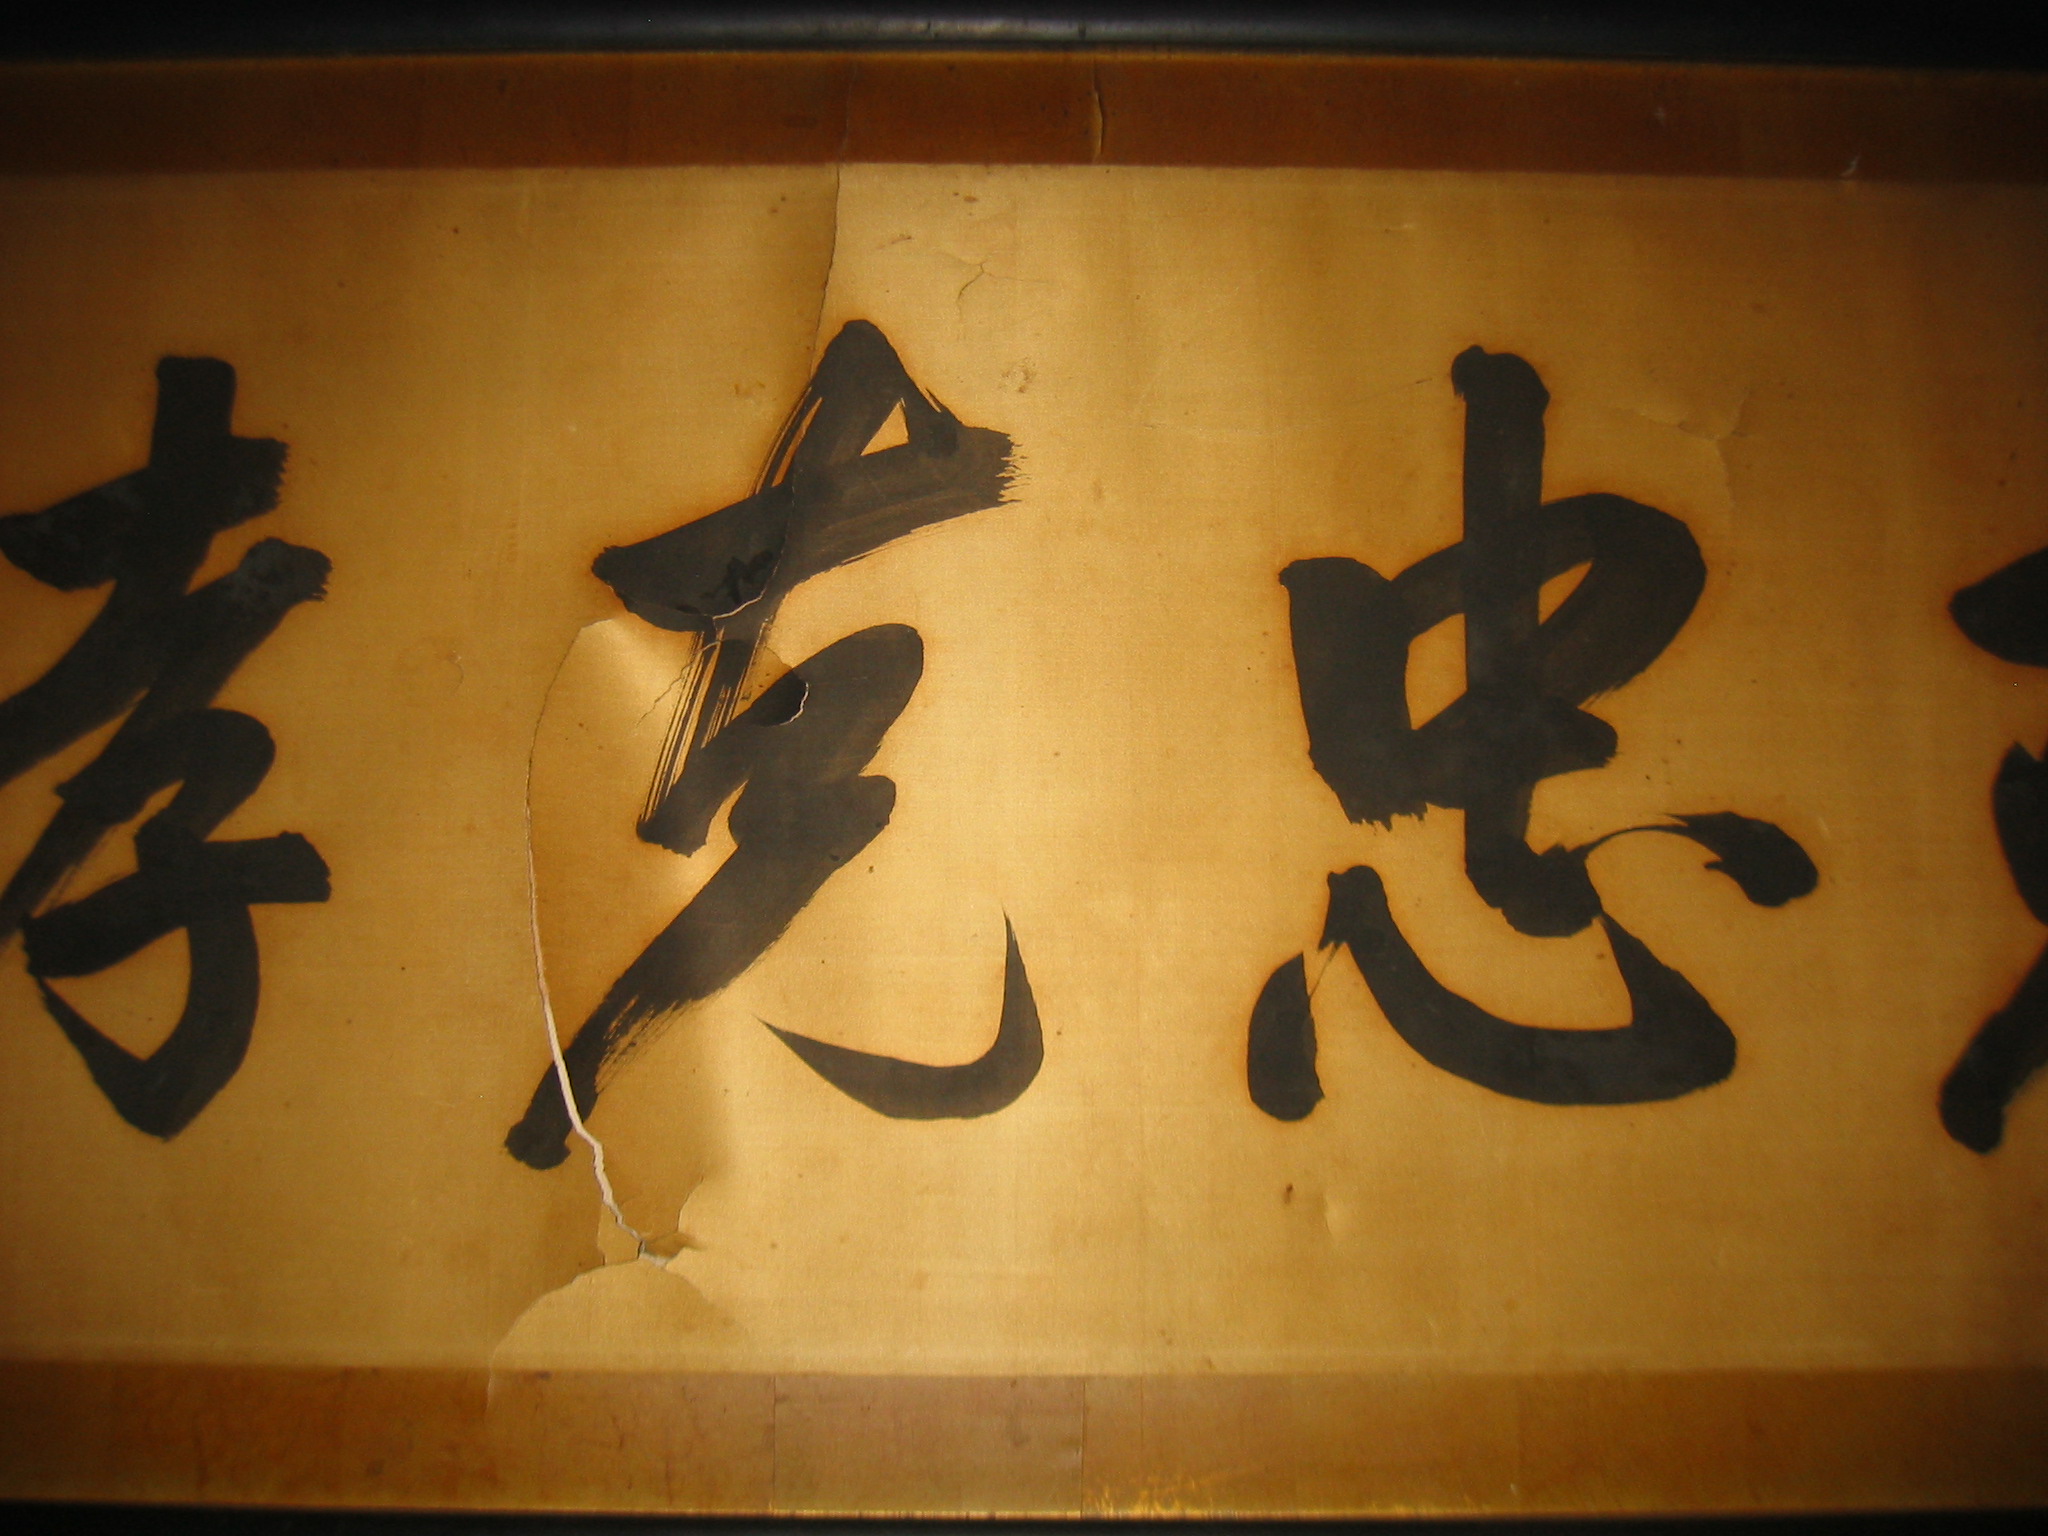 忠克孝